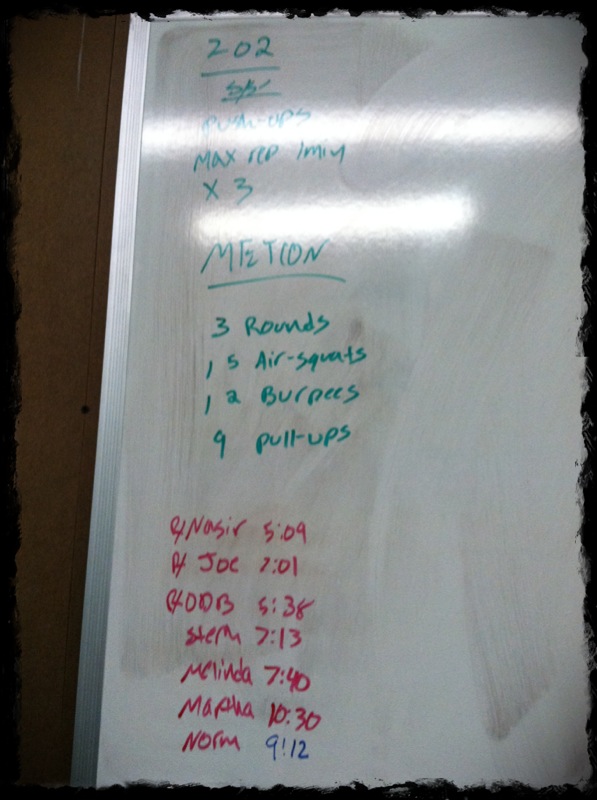 202
S/S
Push-ups
Max rep /min
x 3
METCON
3 Rounds
15 Air-squats
12 Burpees
9 pull-ups
Nasir 5:09
Joe 7:01
ODB 5:38
Steph 7:13
Melinda 7:40
Martha 10:30
Norm 9:12